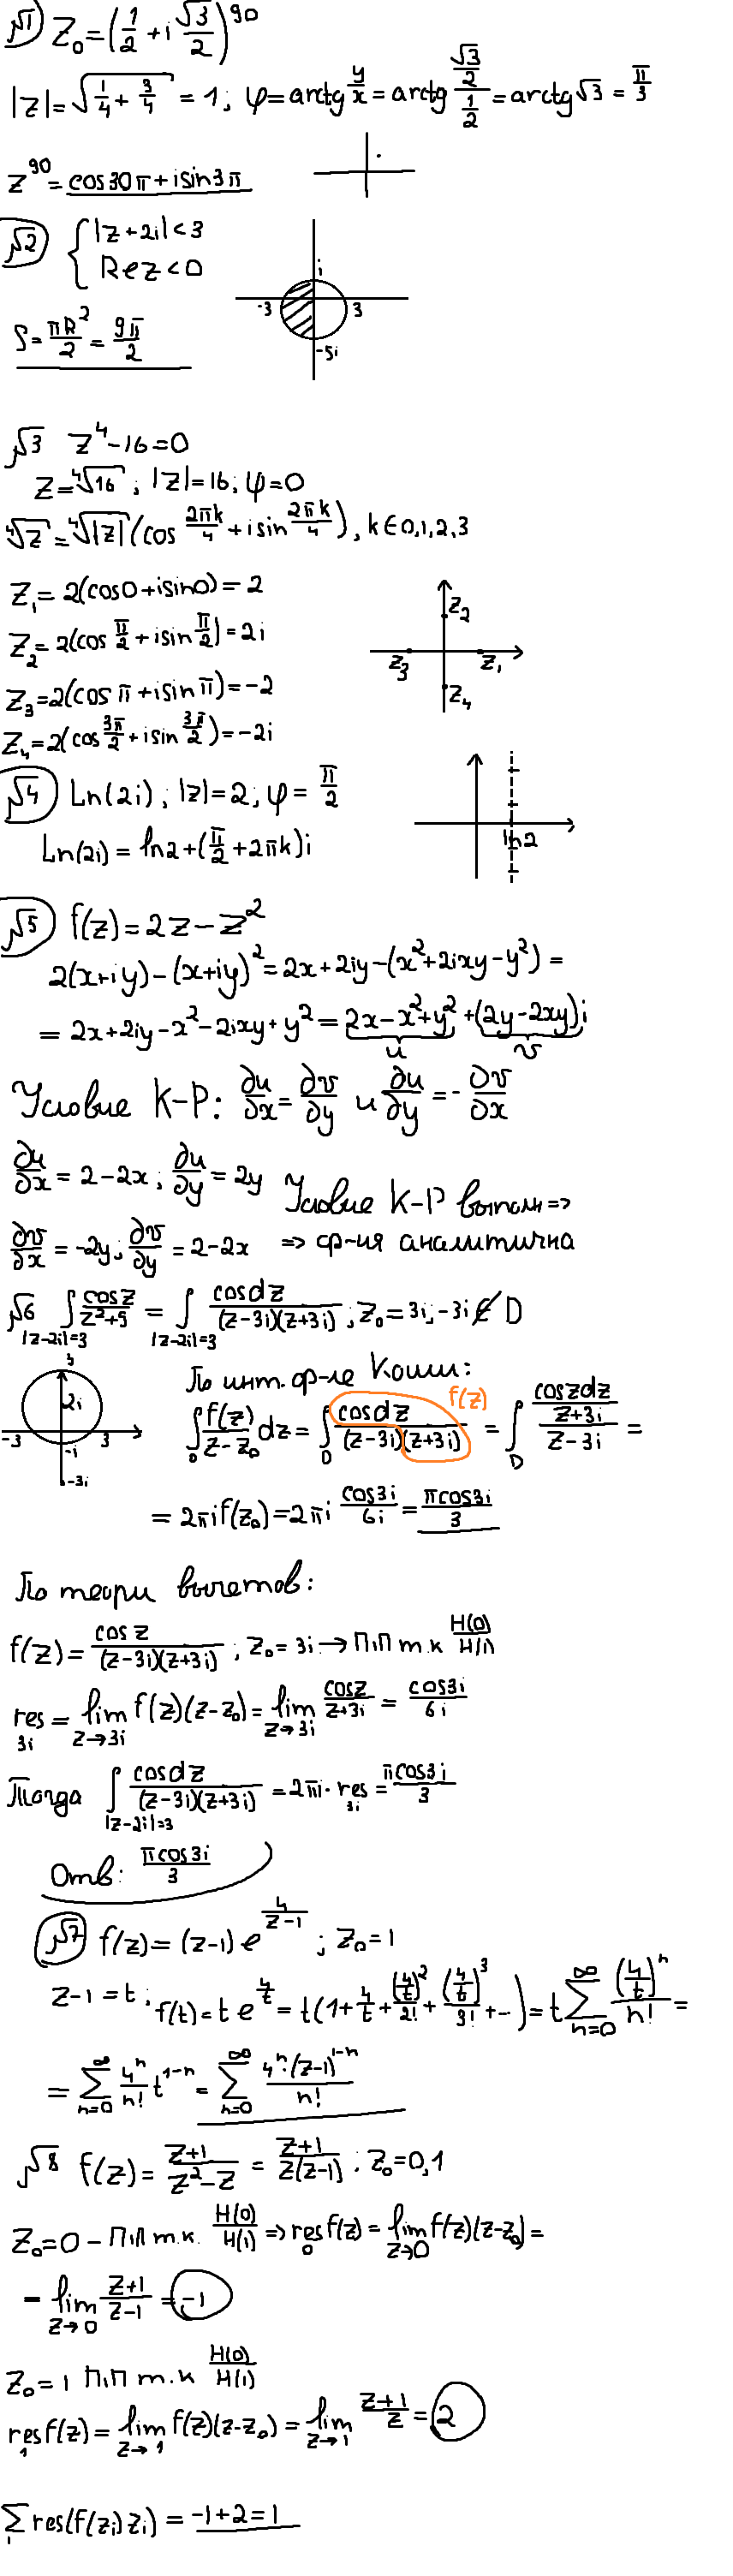 №1 Z₀ = (1/2 + i √3/2)^90
|z| = √(1/4 + 3/4) = 1; φ = arctg y/x = arctg (√3/2)/(1/2) = arctg √3 = π/3
z^90 = cos 30π + i sin 3π
№2 { |z + 2i| < 3
Re z < 0
i
-3 3
-5i
S = πR²/2 = 9π/2
№3 z⁴ - 16 = 0
z = ⁴√16; |z| = 16; φ = 0
⁴√z = ⁴√|z| (cos 2πk/4 + i sin 2πk/4), k ∈ 0,1,2,3
z₁ = 2(cos0 + i sin0) = 2
z₂ = 2(cos π/2 + i sin π/2) = 2i
z₃ = 2(cos π + i sin π) = -2
z₄ = 2(cos 3π/2 + i sin 3π/2) = -2i
z₂
z₃ z₁
z₄
№4 Ln(2i); |z| = 2; φ = π/2
Ln(2i) = ln2 + (π/2 + 2πk)i
ln2
№5 f(z) = 2z - z²
2(x+iy) - (x+iy)² = 2x + 2iy - (x² + 2ixy - y²) =
= 2x + 2iy - x² - 2ixy + y² = 2x - x² + y² + (2y - 2xy)i
u v
Условие К-Р: ∂u/∂x = ∂v/∂y и ∂u/∂y = -∂v/∂x
∂u/∂x = 2 - 2x; ∂u/∂y = 2y Условие К-Р выполн ⇒
∂v/∂x = -2y; ∂v/∂y = 2 - 2x ⇒ ф-ия аналитична
№6 ∫ cosz/(z²+9) = ∫ cosdz/((z-3i)(z+3i)); z₀ = 3i; -3i ∉ D
|z-2i|=3 |z-2i|=3
3
2i
-3 3
-i
-3i
По инт. ф-ле Коши:
f(z)
∫_D f(z)/(z-z₀) dz = ∫_D cosdz/((z-3i)(z+3i)) = ∫_D (coszdz/(z+3i))/(z-3i) =
= 2πi f(z₀) = 2πi cos3i/6i = πcos3i/3
По теори вычетов:
f(z) = cos z/((z-3i)(z+3i)); z₀ = 3i → П1П т.к H(0)/H(1)
res_3i = lim_{z→3i} f(z)(z-z₀) = lim_{z→3i} cosz/(z+3i) = cos3i/6i
Тогда ∫_{|z-2i|=3} cosdz/((z-3i)(z+3i)) = 2πi · res_3i = πcos3i/3
Отв: πcos3i/3
№7 f(z) = (z-1) e^(4/(z-1)); z₀ = 1
z-1 = t; f(t) = t e^(4/t) = t(1 + 4/t + (4/t)²/2! + (4/t)³/3! + ...) = t ∑_{n=0}^∞ (4/t)^n/n! =
= ∑_{n=0}^∞ 4^n/n! t^(1-n) = ∑_{n=0}^∞ 4^n·(z-1)^(1-n)/n!
№8 f(z) = (z+1)/(z²-z) = (z+1)/(z(z-1)); z₀ = 0,1
z₀ = 0 - П1П т.к. H(0)/H(1) ⇒ res_0 f(z) = lim_{z→0} f(z)(z-z₀) =
= lim_{z→0} (z+1)/(z-1) = -1
z₀ = 1 П1П т.к H(0)/H(1)
res_1 f(z) = lim_{z→1} f(z)(z-z₀) = lim_{z→1} (z+1)/z = 2
∑ res(f(z_i) z_i) = -1+2 = 1